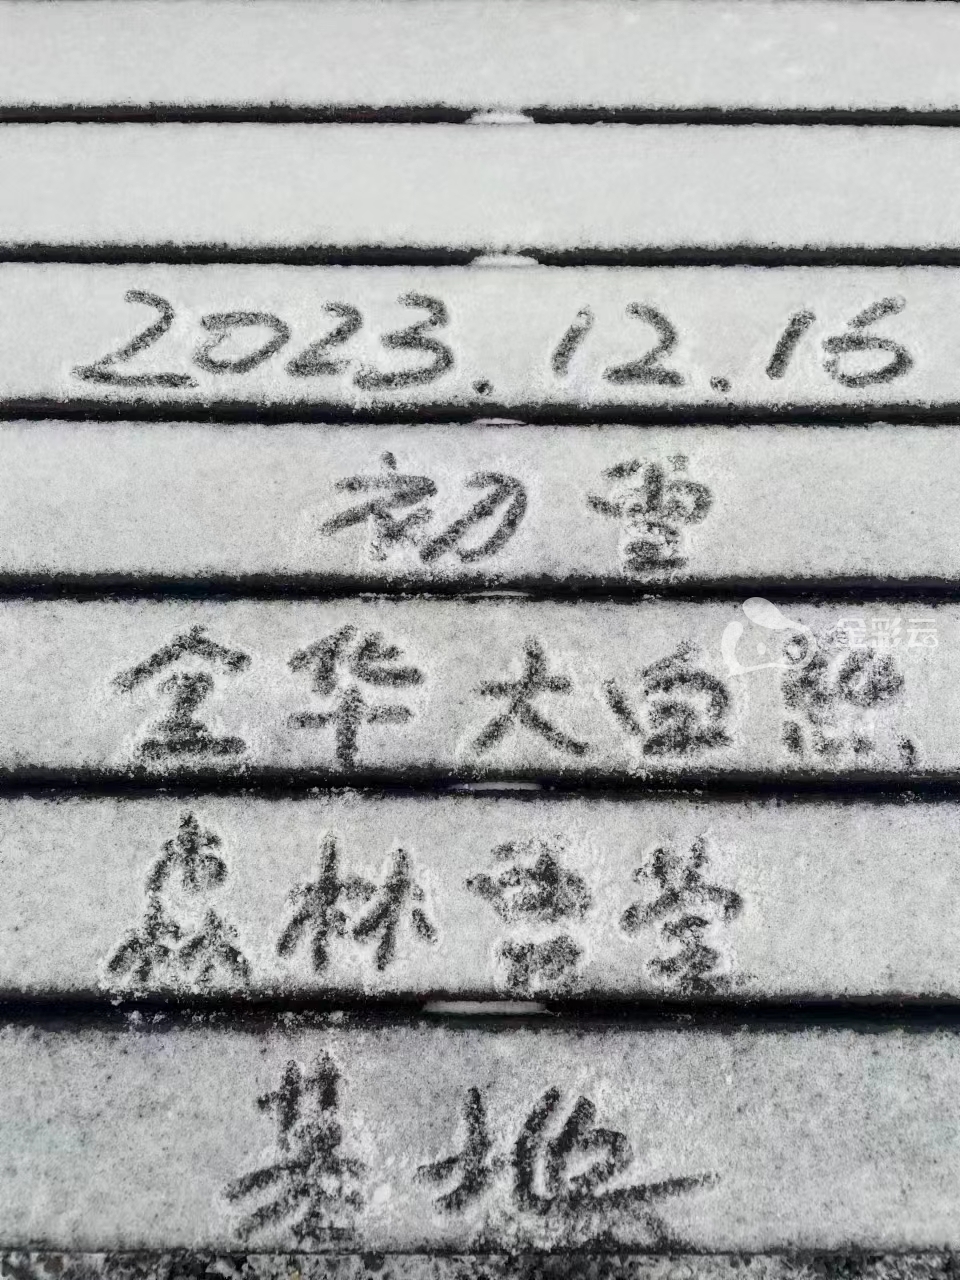 2023.12.16
初雪
金彩云
金华大白熊
森林露营
基地